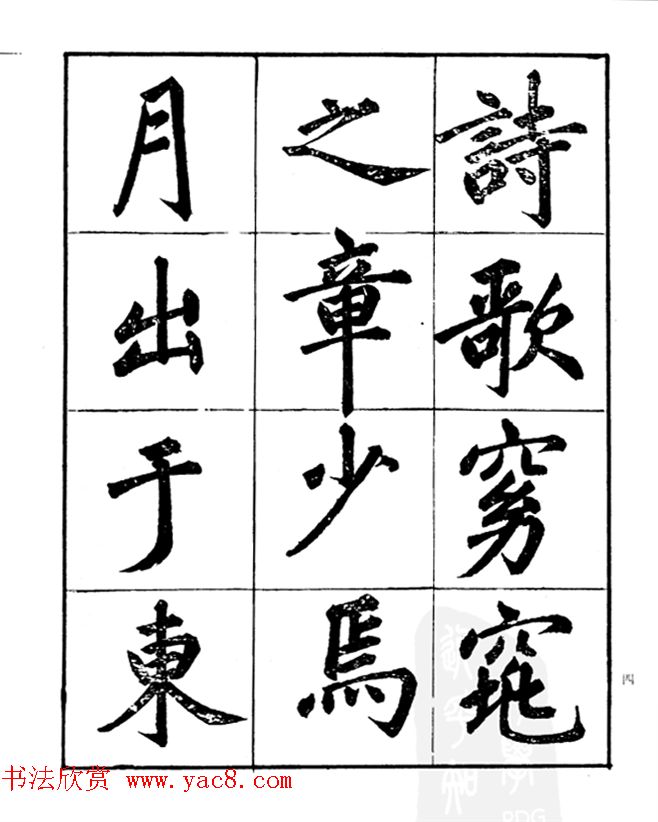 詩歌窈窕
之章少焉
月出于東
四
书法欣赏 www.yac8.com